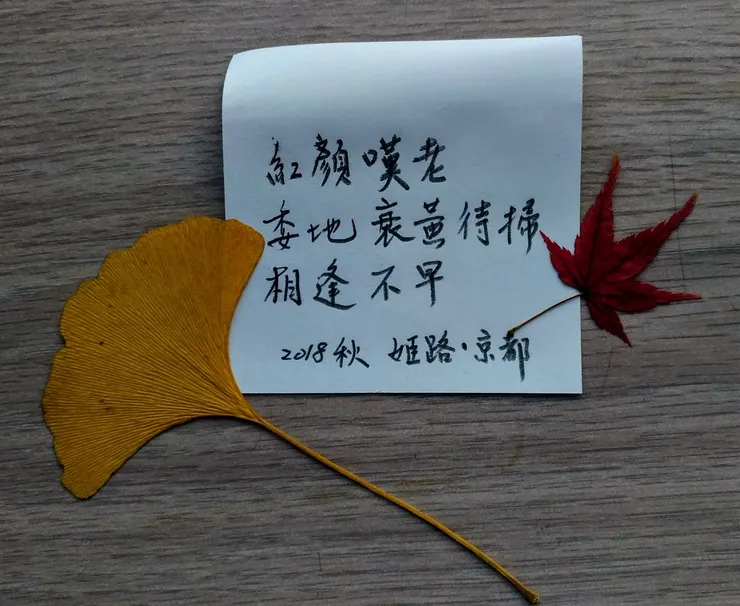 紅顏嘆老
委地衰黃待掃
相逢不早
2018秋 姬路·京都